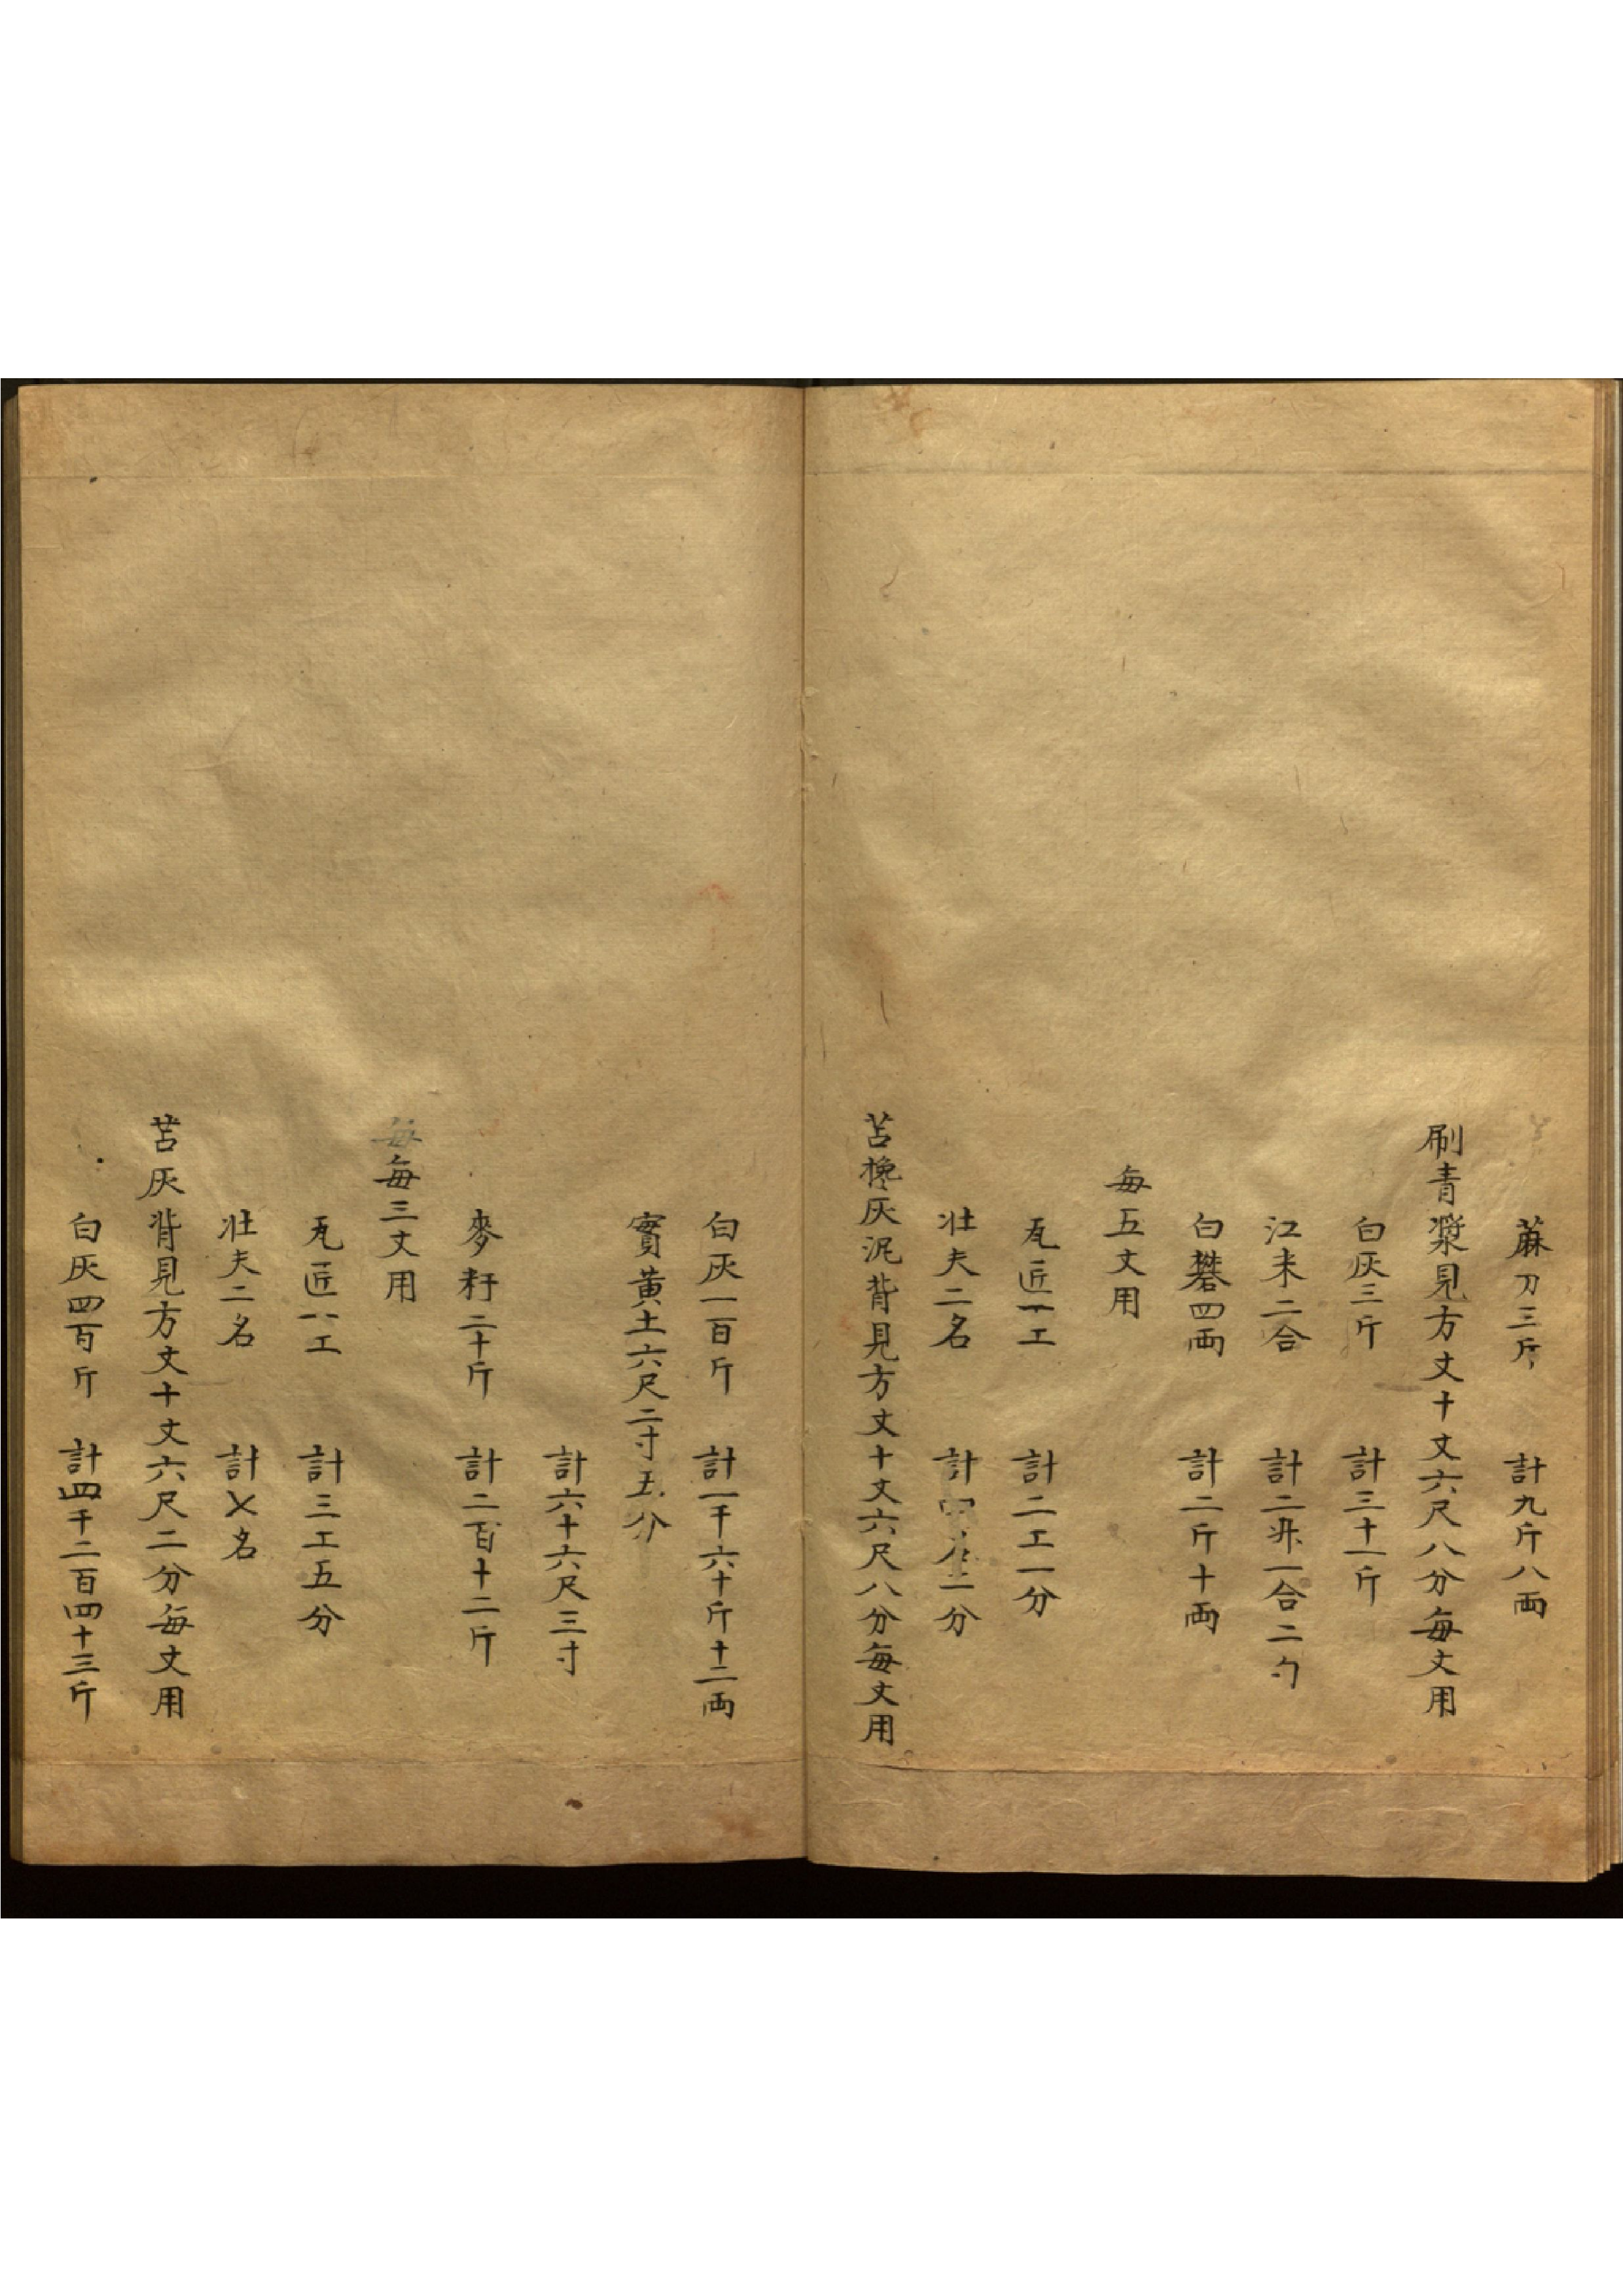 蔴刀三斤　計九斤八両
刷青漿見方丈十丈六尺八分每丈用
白灰三斤　計三十一斤
江米二合　計二升一合二勺
白礬四両　計二斤十両
每五丈用
瓦匠一工　計二工一分
壮夫二名　計四名二分
苫攙灰泥背見方丈十丈六尺八分每丈用
白灰一百斤　計一千六十斤十二両
實黄土六尺二寸五分
計六十六尺三寸
麥䄪二十斤　計二百十二斤
每每三丈用
瓦匠一工　計三工五分
壮夫二名　計七名
苫灰背見方丈十丈六尺二分每丈用
白灰四百斤　計四千二百四十三斤